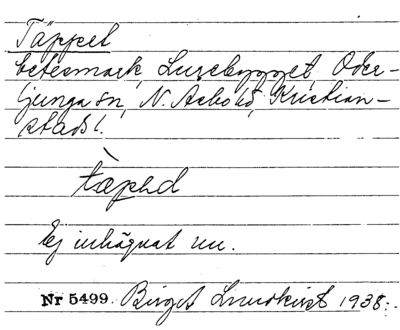 Täppet
betesmark, Lursbygget, Oder-
ljunga sn, N. Åsbo hd, Kristian-
stads l.
tæpəd
Ej inhägnat nu.
Nr 5499. Birgit Lundkvist 1938.